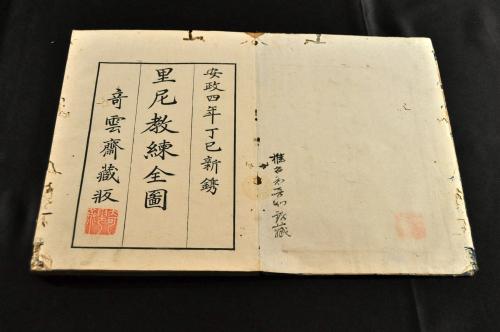 安政四年丁巳新鐫
里尼教練全圖
竒雲齋藏板